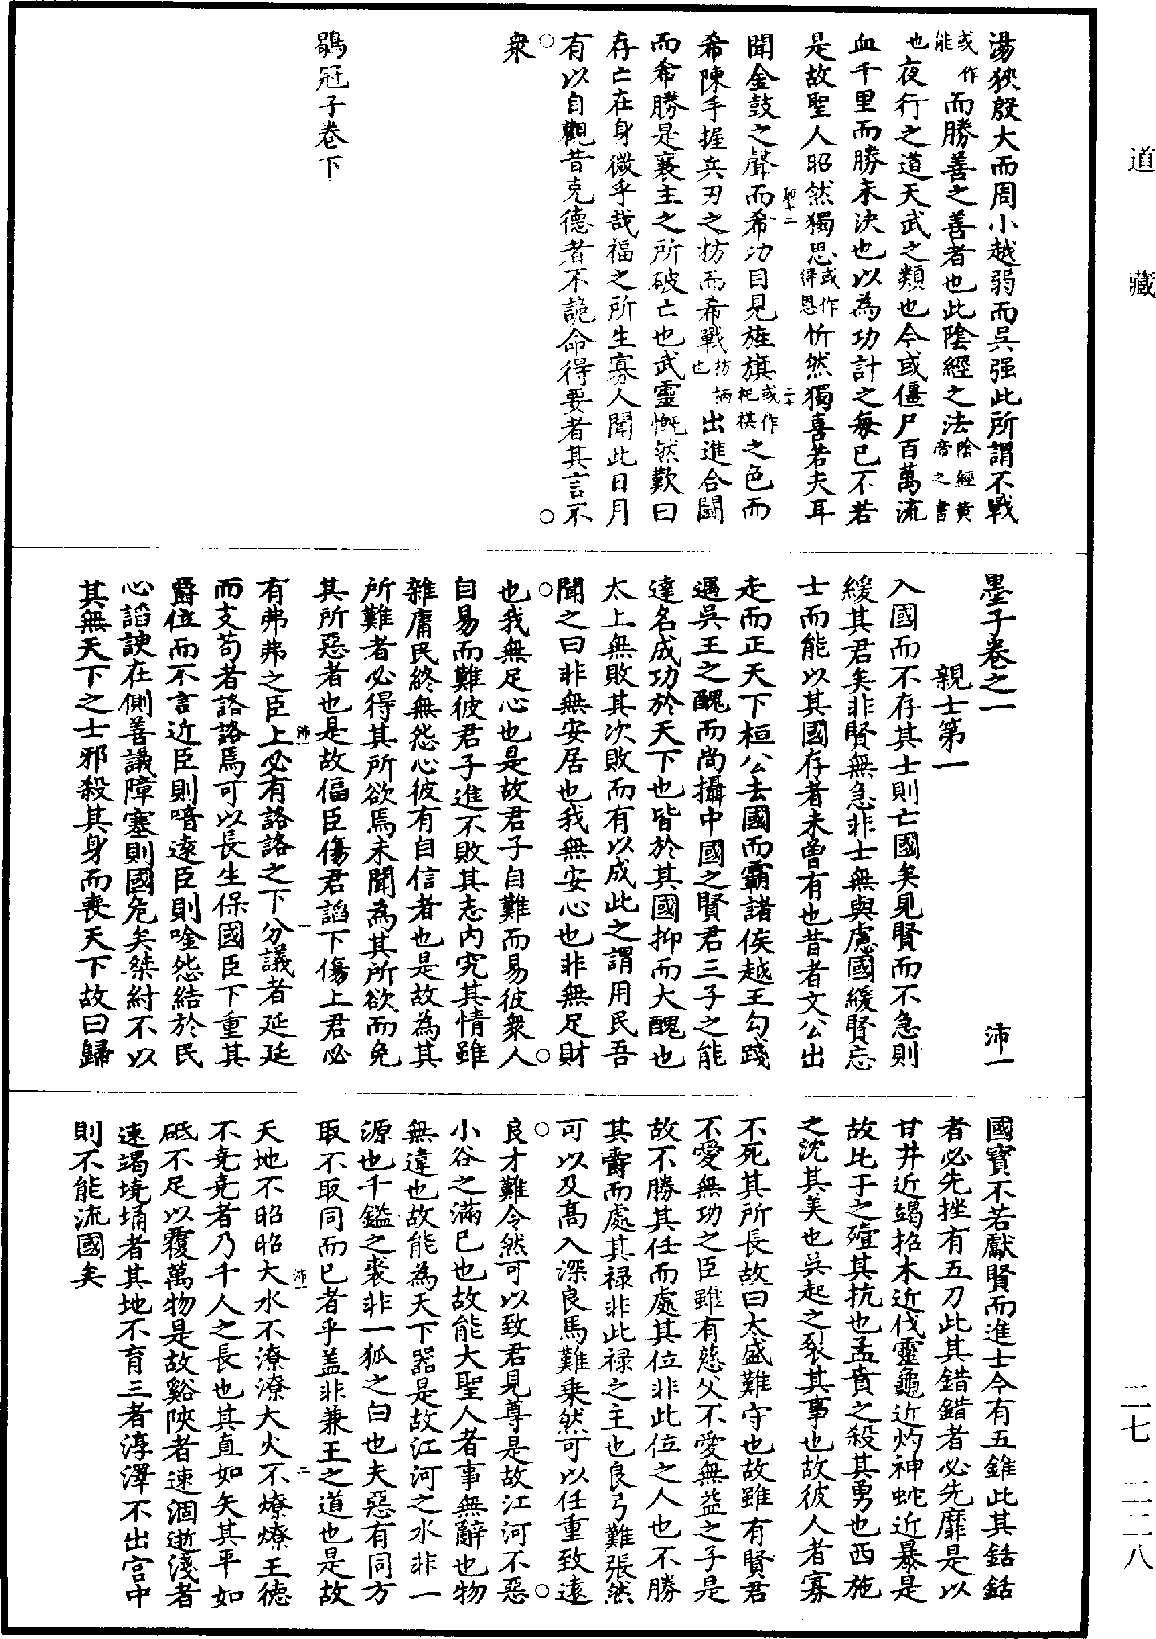 道藏
二七 二二八
湯狹殷大而周小越弱而吳强此所謂不戰
能或作而勝善之善者也此陰經之法陰經黃帝之書
也夜行之道天武之類也今或僵尸百萬流
血千里而勝未決也以為功計之每已不若
是故聖人昭然獨思或作得恩忻然獨喜若夫耳
聞金鼓之聲而希功目見旌旗或作杞棋之色而
希陳手握兵刃之枋而希戰枋柄也出進合鬭
而希勝是襄主之所破亡也武靈慨然歎曰
存亡在身微乎哉福之所生寡人聞此日月
有以自觀昔克德者不詭命得要者其言不
衆
鶡冠子卷下
墨子卷之一 沛一
親士第一
入國而不存其士則亡國矣見賢而不急則
緩其君矣非賢無急非士無與慮國緩賢忘
士而能以其國存者未曾有也昔者文公出
走而正天下桓公去國而霸諸侯越王勾踐
遇吳王之醜而尚攝中國之賢君三子之能
達名成功於天下也皆於其國抑而大醜也
太上無敗其次敗而有以成此之謂用民吾
聞之曰非無安居也我無安心也非無足財
也我無足心也是故君子自難而易彼衆人
自易而難彼君子進不敗其志內究其情雖
雜庸民終無怨心彼有自信者也是故為其
所難者必得其所欲焉未聞為其所欲而免
其所惡者也是故偪臣傷君諂下傷上君必
有弗弗之臣上必有詻詻之下分議者延延
而支苟者詻詻焉可以長生保國臣下重其
爵位而不言近臣則喑遠臣則唫怨結於民
心諂諛在側善議障塞則國危矣桀紂不以
其無天下之士邪殺其身而喪天下故曰歸
國寶不若獻賢而進士今有五錐此其銛銛
者必先挫有五刀此其錯錯者必先靡是以
甘井近竭招木近伐靈龜近灼神蛇近暴是
故比干之殪其抗也孟賁之殺其勇也西施
之沈其美也吳起之裂其事也故彼人者寡
不死其所長故曰太盛難守也故雖有賢君
不愛無功之臣雖有慈父不愛無益之子是
故不勝其任而處其位非此位之人也不勝
其爵而處其祿非此祿之主也良弓難張然
可以及高入深良馬難乘然可以任重致遠
良才難令然可以致君見尊是故江河不惡
小谷之滿已也故能大聖人者事無辭也物
無違也故能為天下器是故江河之水非一
源也千鎰之裘非一狐之白也夫惡有同方
取不取同而已者乎蓋非兼王之道也是故
天地不昭昭大水不潦潦大火不燎燎王德
不堯堯者乃千人之長也其直如矢其平如
砥不足以覆萬物是故谿陝者速涸逝淺者
速竭墝埆者其地不育三者淳澤不出宮中
則不能流國矣